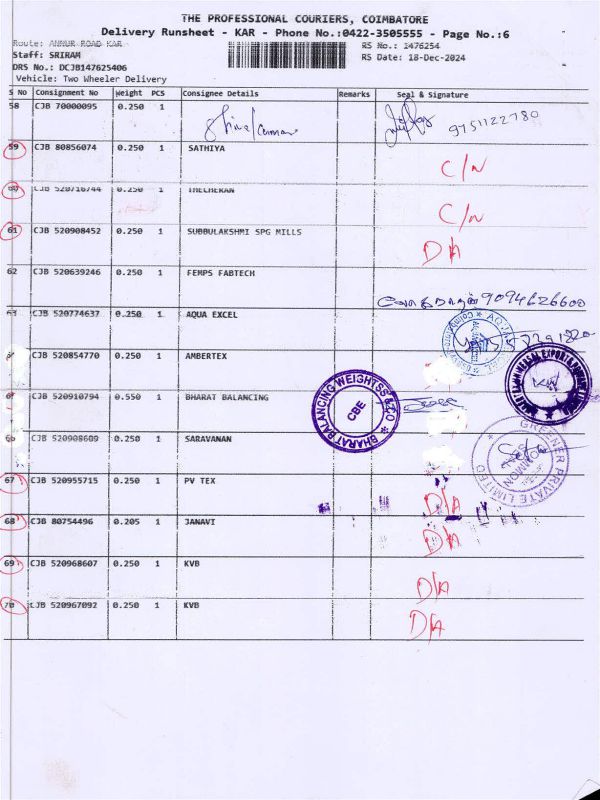 THE PROFESSIONAL COURIERS, COIMBATORE
Delivery Runsheet - KAR - Phone No.:0422-3505555 - Page No.:6
Route: ANNUR ROAD KAR
RS No.: 1476254
Staff: SRIRAM
RS Date: 18-Dec-2024
DRS No.: DCJB147625406
Vehicle: Two Wheeler Delivery
S No Consignment No Weight PCS Consignee Details Remarks Seal & Signature
58 CJB 70000095 0.250 1 9751122780
59 CJB 80856074 0.250 1 SATHIYA C/N
60 CJB 520716744 0.250 1 THECHERAN C/N
61 CJB 520908452 0.250 1 SUBBULAKSHMI SPG MILLS D/A
62 CJB 520639246 0.250 1 FEMPS FABTECH 9094626600
63 CJB 520774637 0.250 1 AQUA EXCEL
CJB 520854770 0.250 1 AMBERTEX
CJB 520910794 0.550 1 BHARAT BALANCING
BHARAT BALANCING WEIGHTSS & CO
CBE
CJB 520908609 0.250 1 SARAVANAN
GREENER PRIVATE LIMITED
67 CJB 520955715 0.250 1 PV TEX D/A
68 CJB 80754496 0.205 1 JANAVI D/A
69 CJB 520968607 0.250 1 KVB D/A
70 CJB 520967092 0.250 1 KVB D/A